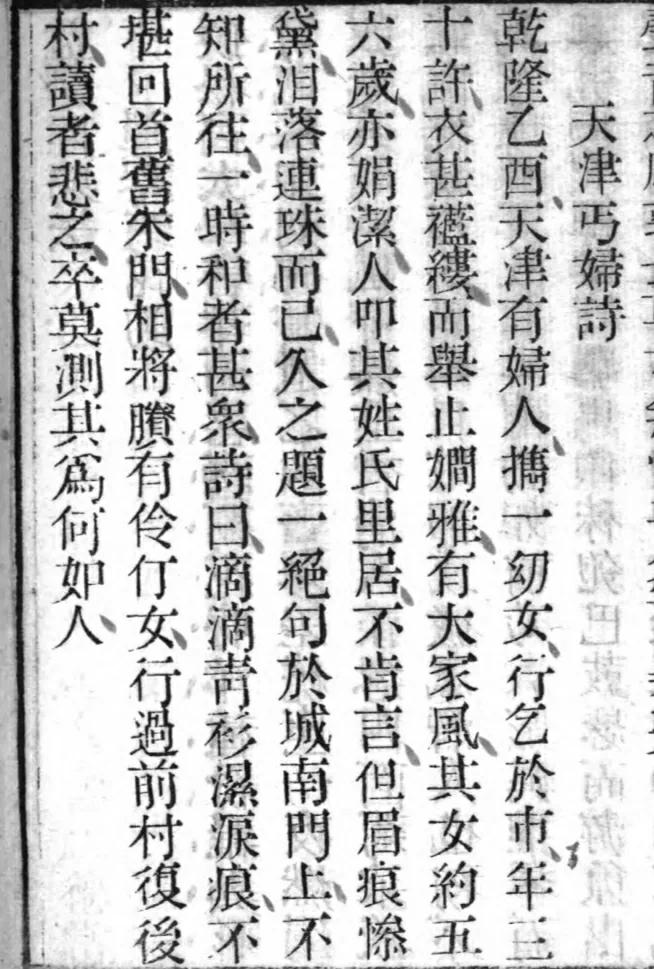 天津丐婦詩
乾隆乙酉天津有婦人攜一幼女行乞於市年三
十許衣甚襤縷而舉止嫻雅有大家風其女約五
六歲亦娟潔人叩其姓氏里居不肯言但眉痕慘
黛泪落連珠而已久之題一絕句於城南門上不
知所往一時和者甚衆詩曰滴滴靑衫濕淚痕不
堪回首舊朱門相將賸有伶仃女行過前村復後
村讀者悲之卒莫測其爲何如人